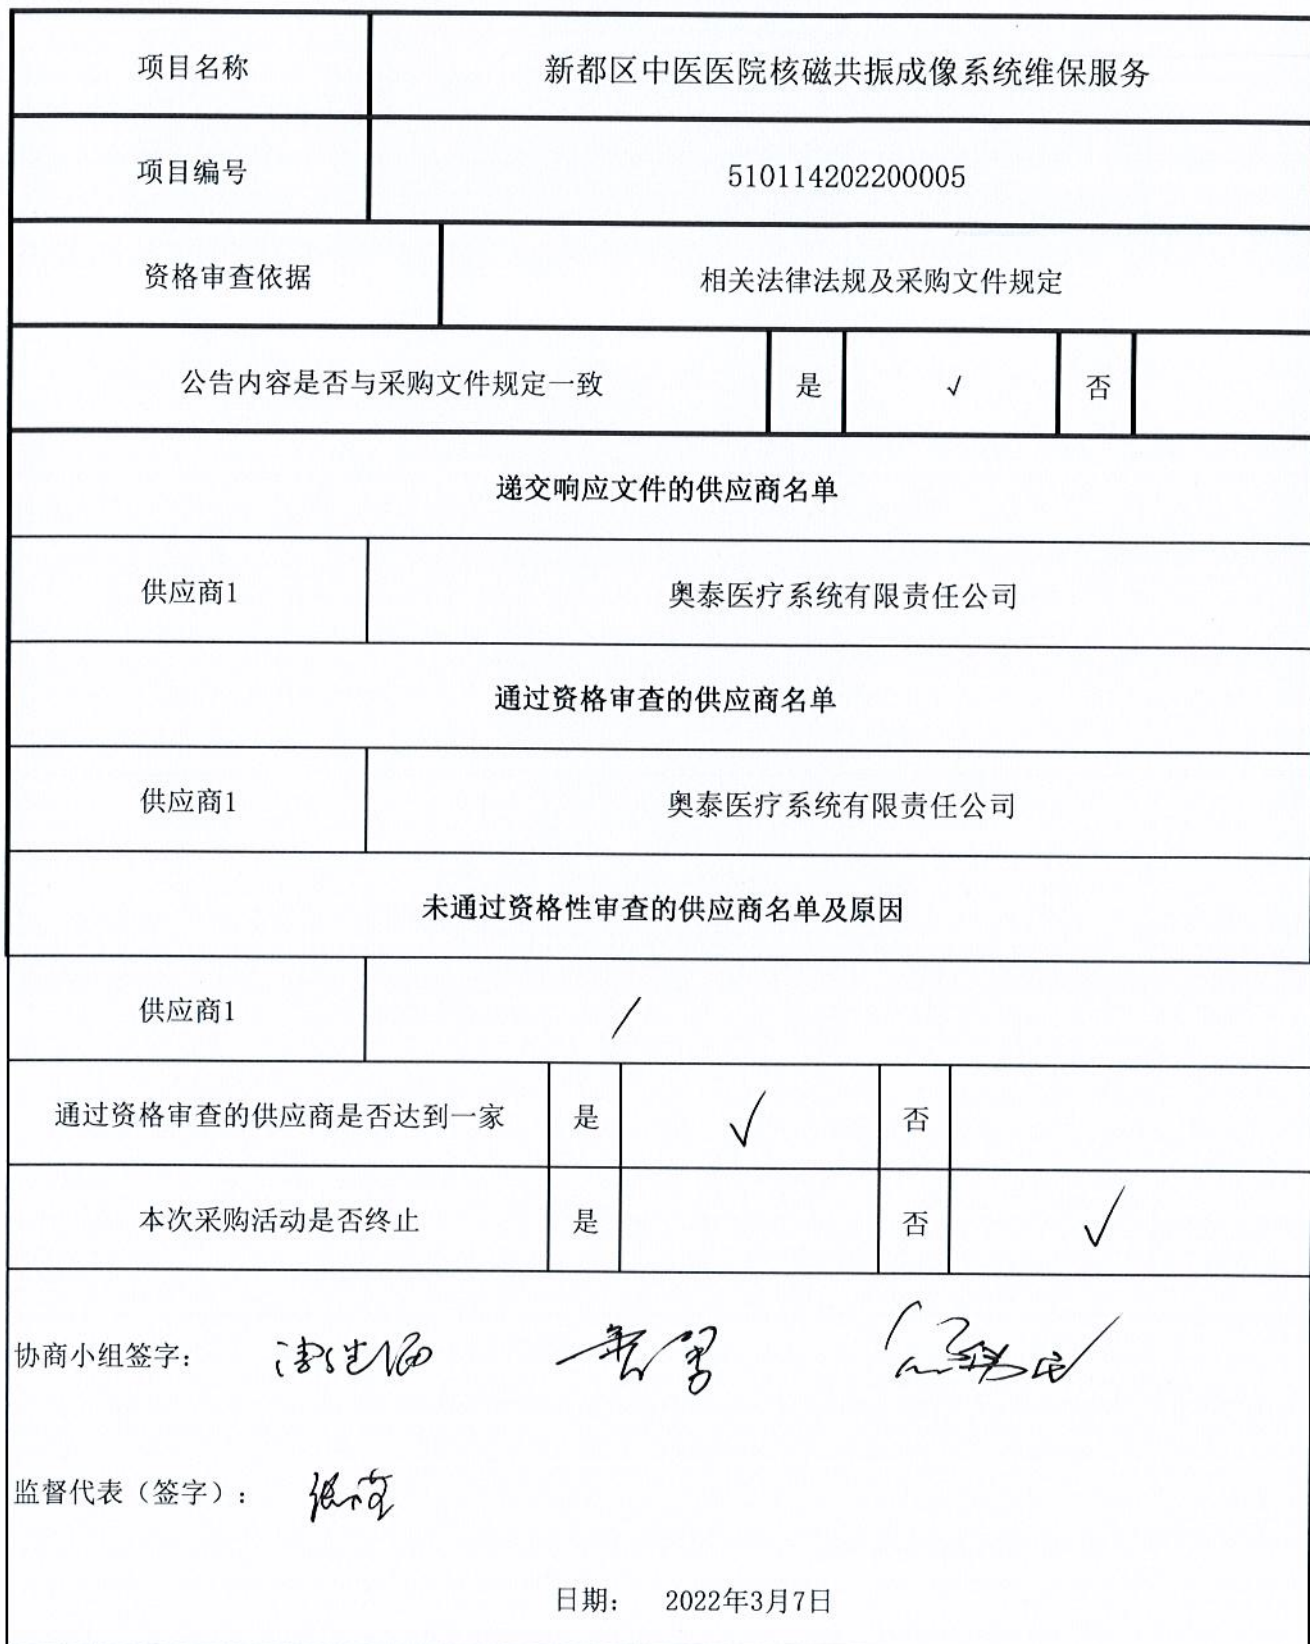 项目名称 新都区中医医院核磁共振成像系统维保服务
项目编号 510114202200005
资格审查依据 相关法律法规及采购文件规定
公告内容是否与采购文件规定一致 是 √ 否
递交响应文件的供应商名单
供应商1 奥泰医疗系统有限责任公司
通过资格审查的供应商名单
供应商1 奥泰医疗系统有限责任公司
未通过资格性审查的供应商名单及原因
供应商1 /
通过资格审查的供应商是否达到一家 是 √ 否
本次采购活动是否终止 是 否 √
协商小组签字：
监督代表（签字）：
日期： 2022年3月7日